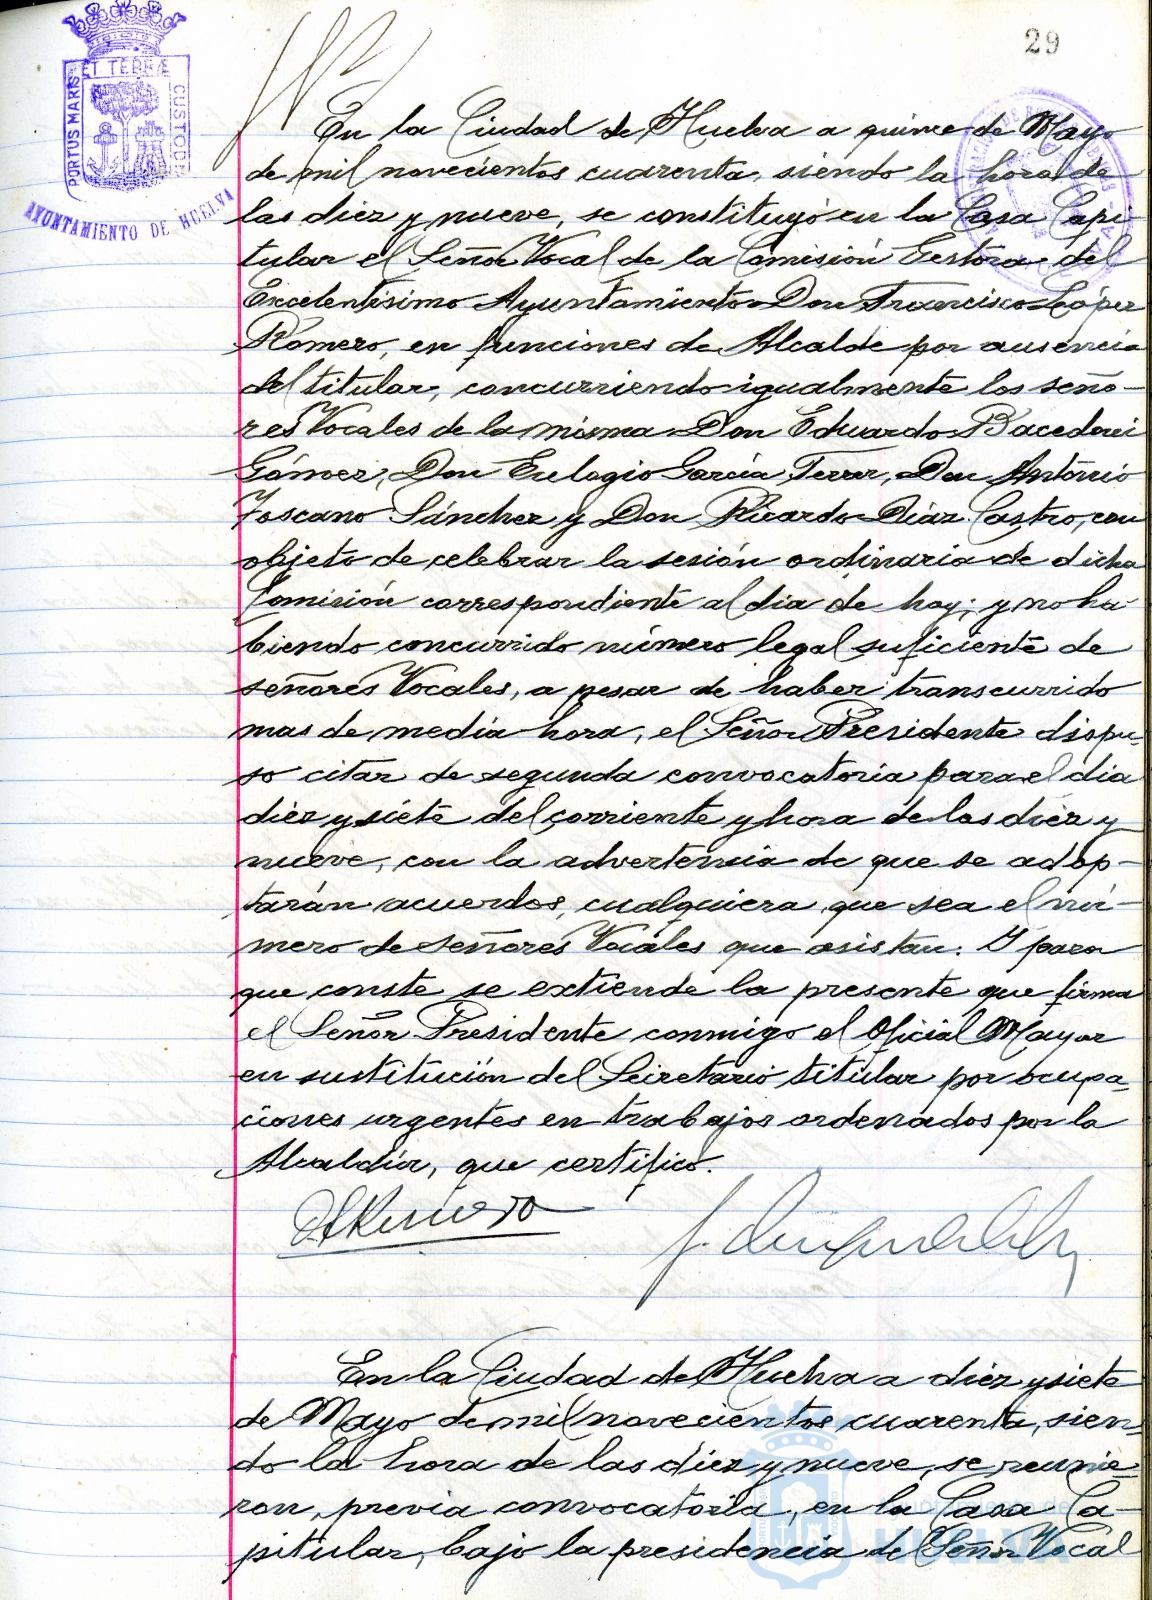 29
PORTUS MARIS ET TERRÆ CUSTODIA
AYUNTAMIENTO DE HUELVA
En la Ciudad de Huelva a quince de Mayo
de mil novecientos cuarenta, siendo la hora de
las diez y nueve, se constituyó en la Casa Capi-
tular el Señor Vocal de la Comisión Gestora del
Excelentísimo Ayuntamiento Don Francisco López
Romero, en funciones de Alcalde por ausencia
del titular, concurriendo igualmente los seño-
res Vocales de la misma Don Eduardo
Gómez, Don Eulogio García Ferrer, Don Antonio
Toscano Sánchez y Don Ricardo Díaz Castro, con
objeto de celebrar la sesión ordinaria de dicha
Comisión correspondiente al dia de hoy; y no ha-
biendo concurrido número legal suficiente de
señores Vocales, a pesar de haber transcurrido
mas de media hora, el Señor Presidente dispu-
so citar de segunda convocatoria para el dia
diez y siete del corriente y hora de las diez y
nueve, con la advertencia de que se adop-
tarán acuerdos, cualquiera que sea el nú-
mero de señores Vocales que asistan. Y para
que conste se extiende la presente que firma
el Señor Presidente conmigo el Oficial Mayor
en sustitución del Secretario titular por ocupa-
ciones urgentes en trabajos ordenados por la
Alcaldía, que certifico.
En la Ciudad de Huelva a diez y siete
de Mayo de mil novecientos cuarenta, sien-
do la hora de las diez y nueve, se reunie-
ron, previa convocatoria, en la Casa Ca-
pitular, bajo la presidencia del Señor Vocal